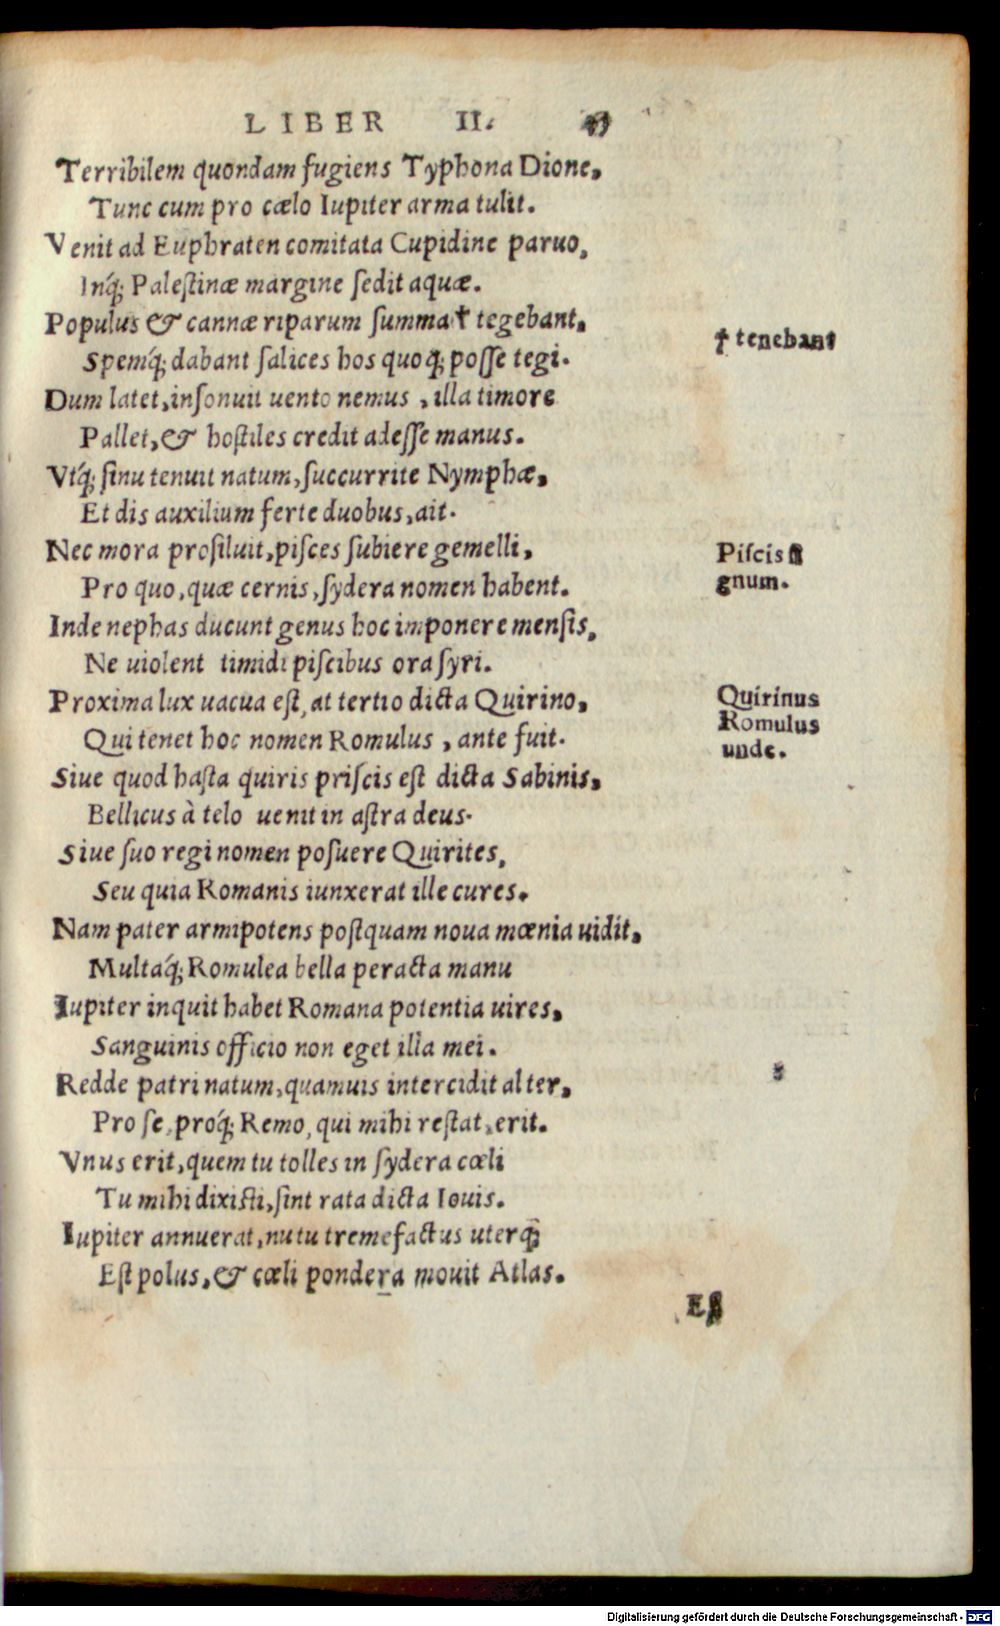 LIBER II.
Terribilem quondam fugiens Typhona Dione,
Tunc cum pro cœlo Iupiter arma tulit.
Venit ad Euphraten comitata Cupidine paruo,
Inq́; Palestinæ margine sedit aquæ.
Populus & cannæ riparum summa † tegebant,
† tenebant
Spemq́; dabant salices hos quoq; posse tegi.
Dum latet, insonuit uento nemus, illa timore
Pallet, & hostiles credit adesse manus.
Vtq́; sinu tenuit natum, succurrite Nymphæ,
Et dis auxilium ferte duobus, ait.
Nec mora prosiluit, pisces subiere gemelli,
Piscis
gnum.
Pro quo, quæ cernis, sydera nomen habent.
Inde nephas ducunt genus hoc imponere mensis,
Ne uiolent timidi piscibus ora syri.
Proxima lux uacua est, at tertio dicta Quirino,
Quirinus
Romulus
unde.
Qui tenet hoc nomen Romulus, ante fuit.
Siue quod hasta quiris priscis est dicta Sabinis,
Bellicus à telo uenit in astra deus.
Siue suo regi nomen posuere Quirites,
Seu quia Romanis iunxerat ille cures.
Nam pater armipotens postquam noua mœnia uidit,
Multaq́; Romulea bella peracta manu
Iupiter inquit habet Romana potentia uires,
Sanguinis officio non eget illa mei.
Redde patri natum, quamuis intercidit alter,
Pro se, proq́; Remo, qui mihi restat, erit.
Vnus erit, quem tu tolles in sydera cœli
Tu mihi dixisti, sint rata dicta Iouis.
Iupiter annuerat, nutu tremefactus uterq;
Est polus, & cœli pondera mouit Atlas.
Digitalisierung gefördert durch die Deutsche Forschungsgemeinschaft - DFG